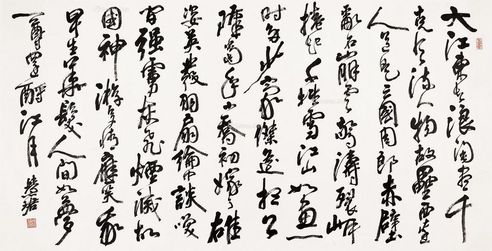 大江東去浪淘盡千
古風流人物故壘西邊
人道是三國周郎赤壁
亂石崩雲驚濤裂岸
捲起千堆雪江山如畫一
時多少豪傑遙想公
瑾當年小喬初嫁了雄
姿英發羽扇綸巾談笑
間強虜灰飛煙滅故
國神游多情應笑我
早生華髮人間如夢
一尊還酹江月 慧珺